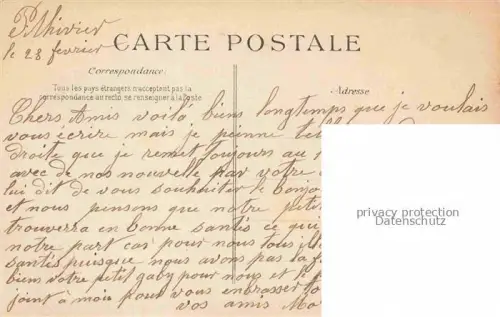 Pithivier
le 28 fevrier
CARTE POSTALE
Correspondance
Tous les pays étrangers n'acceptent pas la
correspondance au recto se renseigner à la Poste
Adresse
Chers Amis voilà bien longtemps que je voulais
vous écrire mais je
droite que je remet toujours au
avec de nos nouvelle par votre
lui dit de vous souhaiter le bonjo
et nous pensons que notre petit
trouverra en bonne santés ce qui
notre part car pour nous tous
santés puisque nous avons pas la
bien votre petit gaby pour nous et
joint à moi pour vous embrasser to
vos amis
privacy protection
Datenschutz